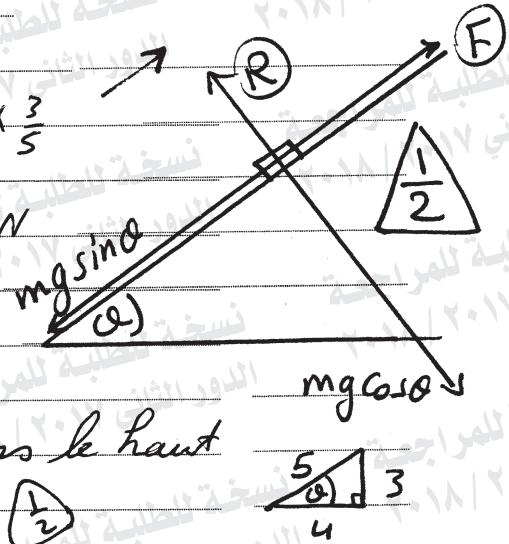 F
R
× 3/5
N
1/2
mg sin θ
θ
mg cos θ
le haut
1/2
5
3
θ
4
نسخة للطلبة للمراجعة
الدور الثاني ٢٠١٧ / ٢٠١٨